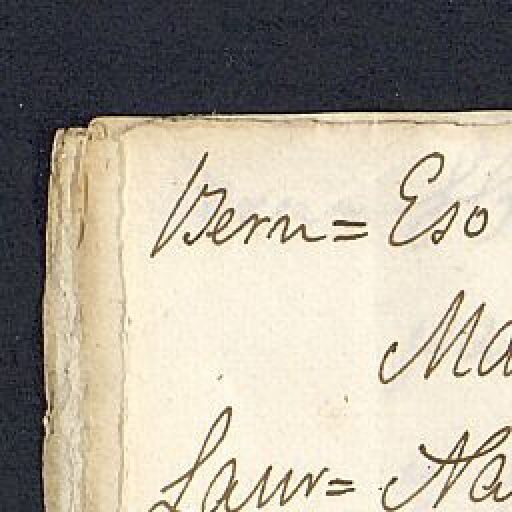 Bern= Eso
Ma
Laur= Na